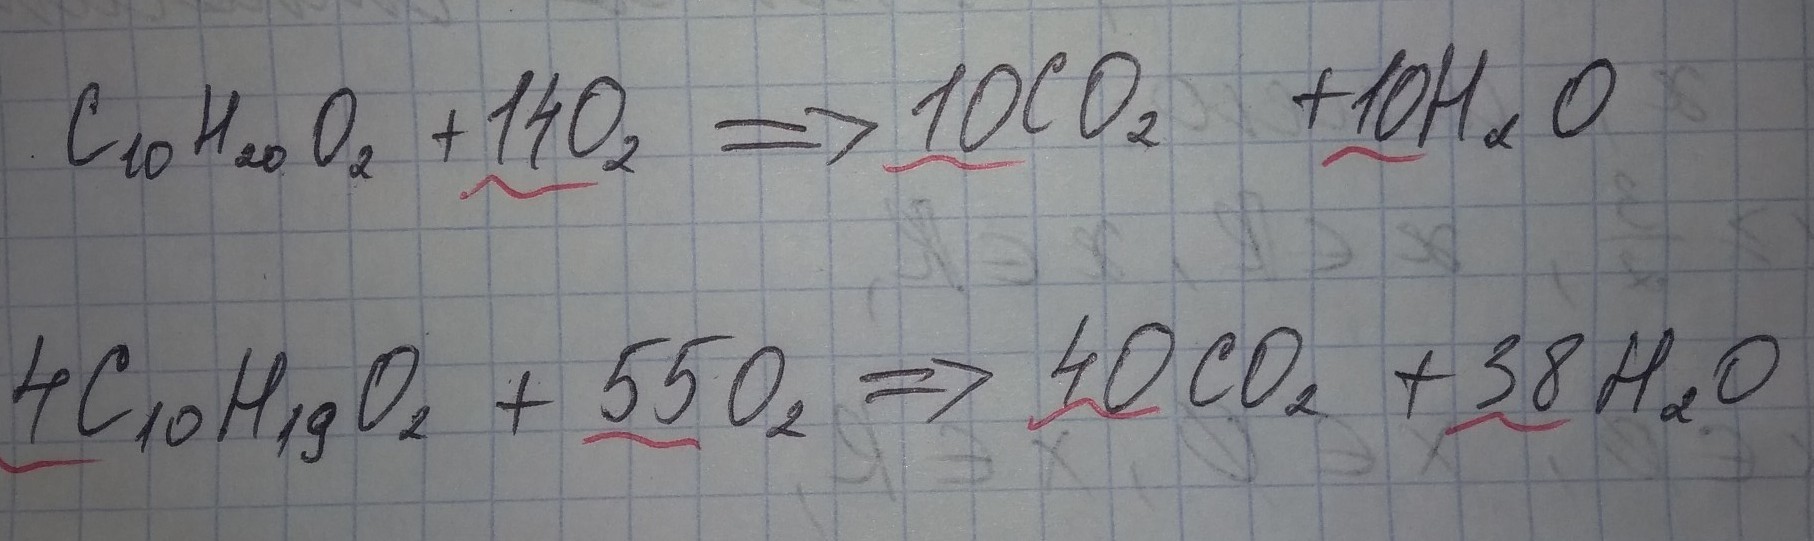 C₁₀H₂₀O₂ + 14O₂ => 10CO₂ + 10H₂O
4C₁₀H₁₉O₂ + 55O₂ => 40CO₂ + 38H₂O